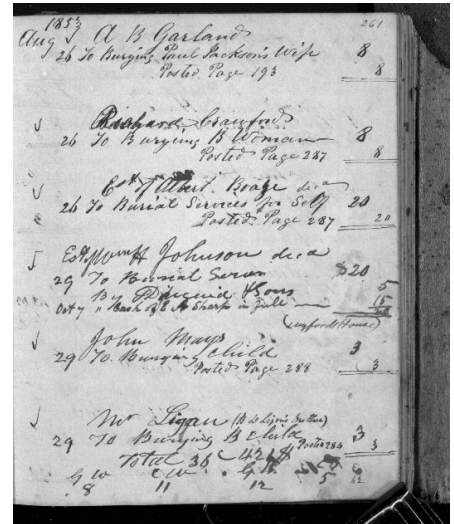 1853 261
Aug A B Garland
26 To Burying Paul Jackson's Wife 8
Posted Page 193 8
Richard Crawford
26 To Burying B Woman 8
Posted Page 287 8
Est of Albert Boage decd
26 To Burial Services for Self 20
Posted Page 287 20
Est H Johnson decd
29 To Burial $20
By Diuguid & Sons 5
Oct 7 " Cash of E Sharp in full 15
John Mays
29 To Burying Child 3
Posted Page 288 3
Mr Ligan
29 To Burying B Child 3
Posted 284 3
Total 36
G W G B
8 11 12 5